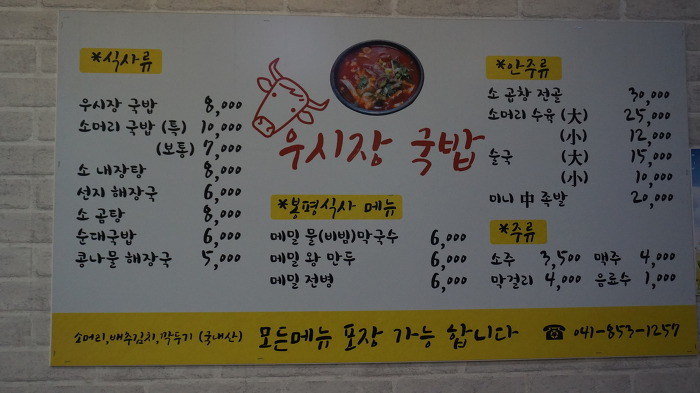 *식사류
우시장 국밥 8,000
소머리 국밥 (특) 10,000
(보통) 7,000
소 내장탕 8,000
선지 해장국 6,000
소 곰탕 8,000
순대국밥 6,000
콩나물 해장국 5,000
우시장 국밥
*봉평식사 메뉴
메밀 물(비빔)막국수 6,000
메밀 왕 만두 6,000
메밀 전병 6,000
*안주류
소 곱창 전골 30,000
소머리 수육 (大) 25,000
(小) 12,000
술국 (大) 15,000
(小) 10,000
미니 中 족발 20,000
*주류
소주 3,500 맥주 4,000
막걸리 4,000 음료수 1,000
소머리,배추김치,깍두기 (국내산) 모든메뉴 포장 가능 합니다 ☎ 041-853-1257